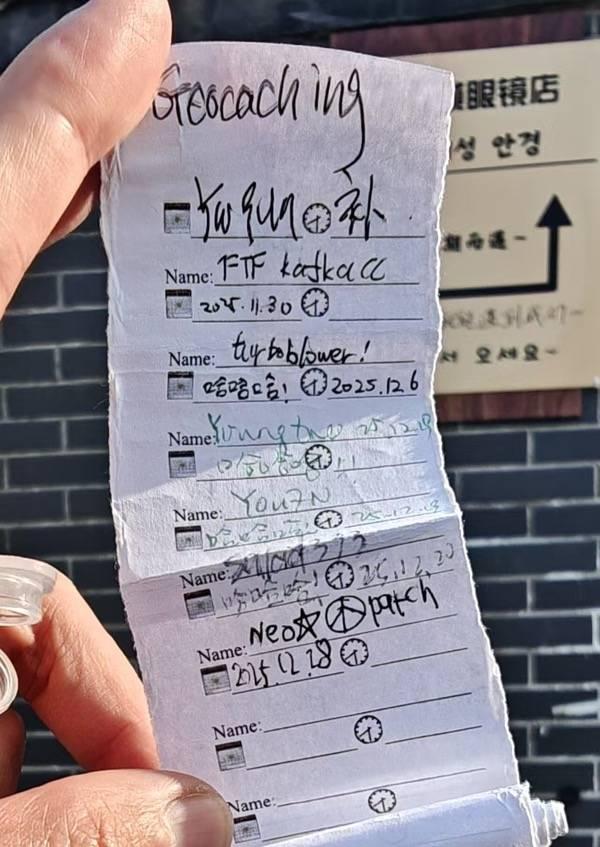 Geocaching
补
Name: FTF kafkacc
2025.11.30
Name: turboblower!
哈哈哈! 2025.12 6
Name: Youngtree 25.12.19
哈哈哈!!
Name: YouZN
哈哈哈! 25.12.19
Name:
哈哈哈! 25.12.20
Name: Neo☆ patch
2025.12.28
Name:
Name:
眼镜店
성 안경
서 오세요~